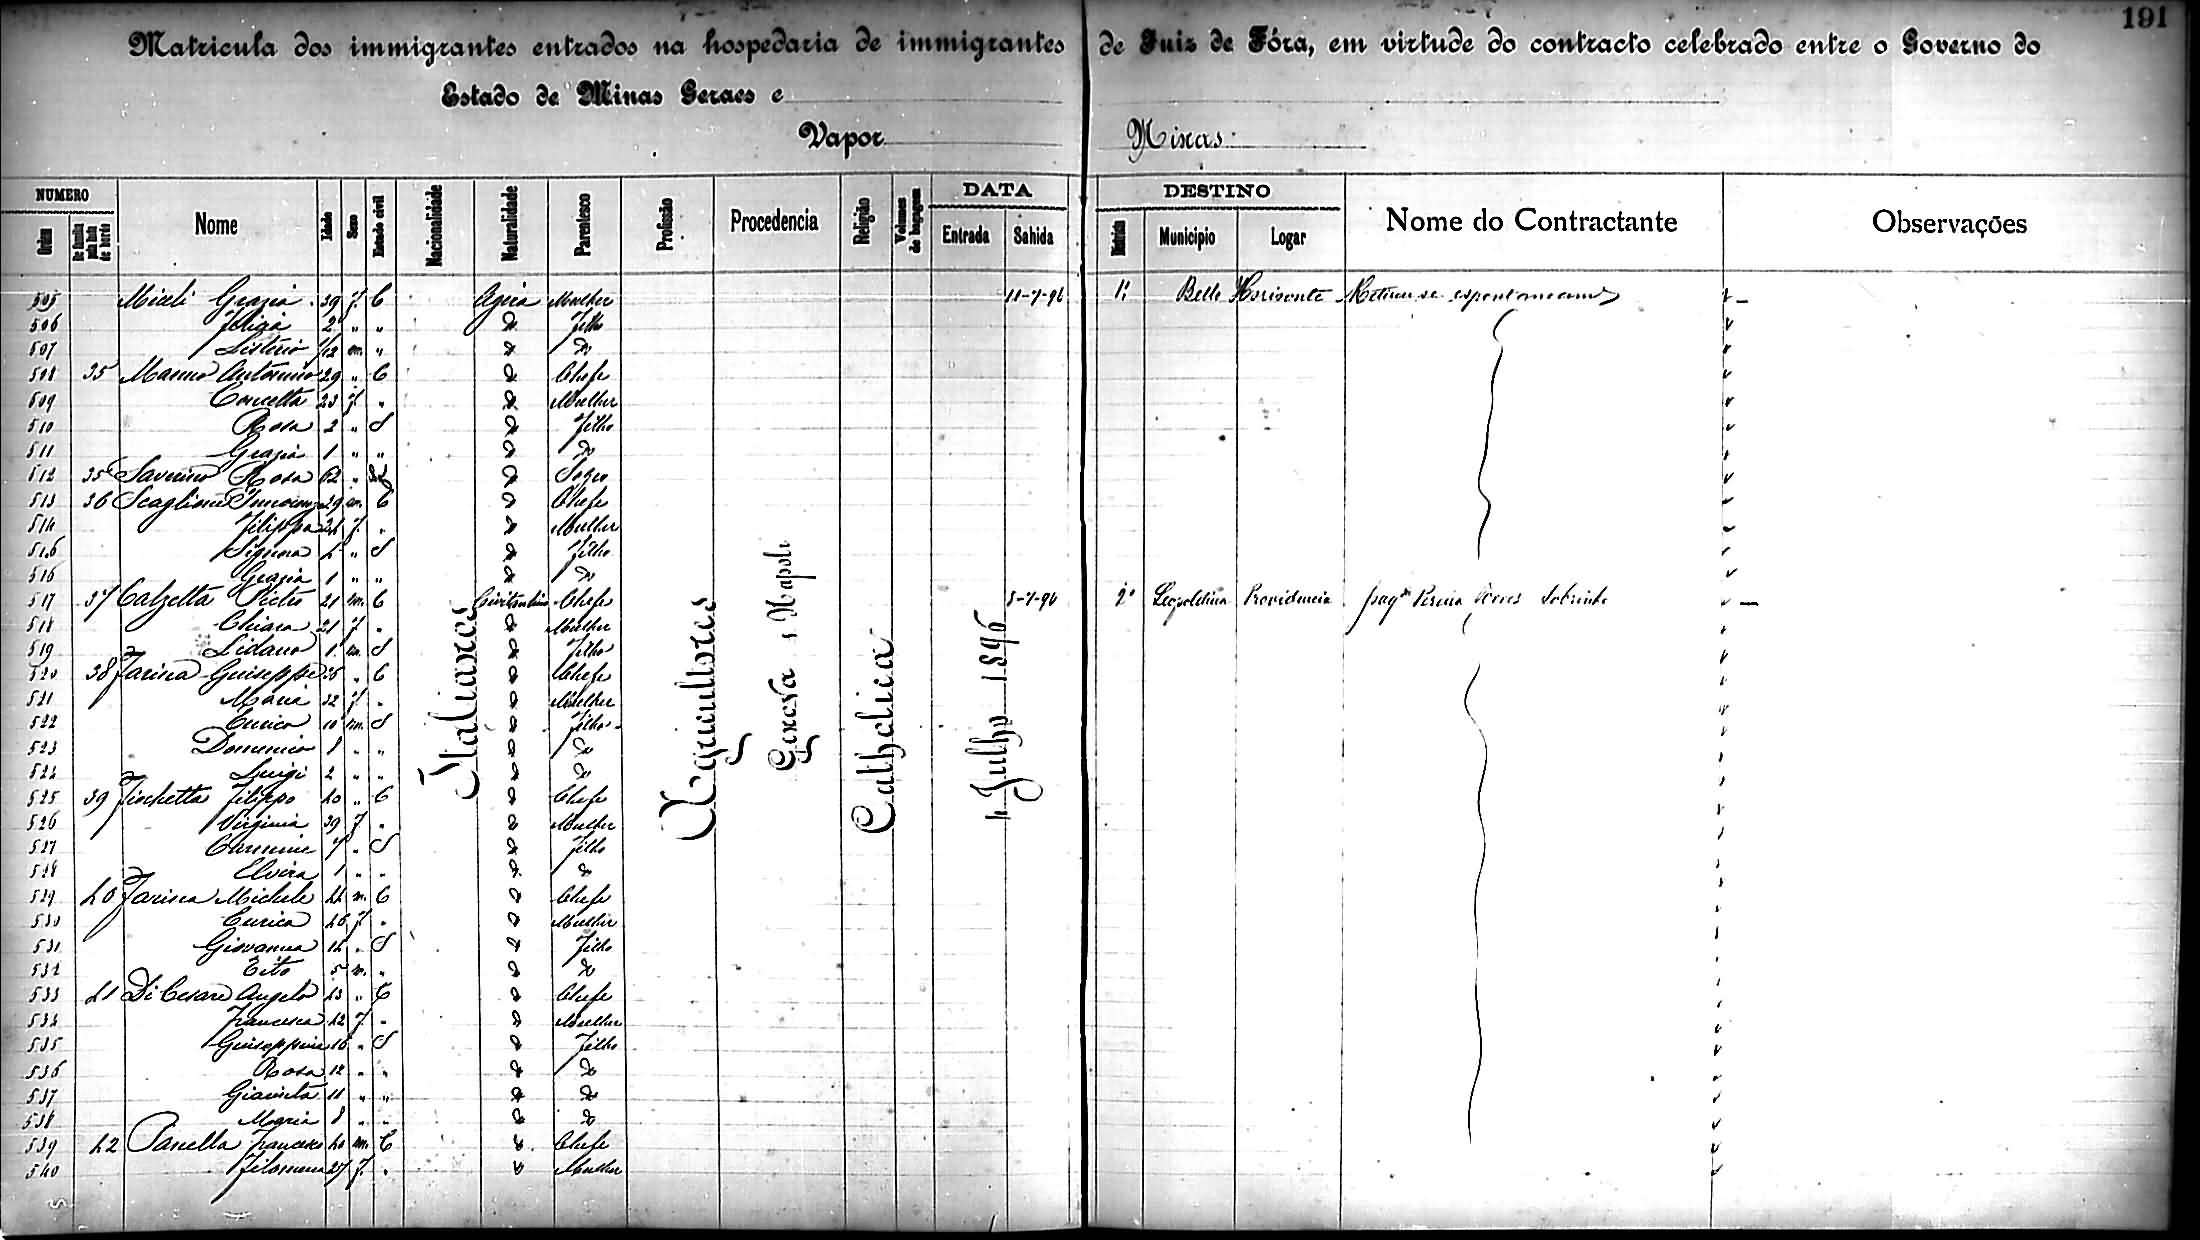 191
Matricula dos immigrantes entrados na hospedaria de immigrantes de Juiz de Fóra, em virtude do contracto celebrado entre o Governo do
Estado de Minas Geraes e
Vapor Minas
NUMERO DATA DESTINO
Ordem De familia pela lista de bordo Nome Idade Sexo Estado civil Nacionalidade Naturalidade Parentesco Profissão Procedencia Religião Volumes de bagagem Entrada Sahida Districto Municipio Logar Nome do Contractante Observações
505 Miceli Grazia 39 f C Agira Mulher 11-7-96 1º Bello Horisonte
506 2 " " Do Filho
507 1/12 m " Do Do
508 35 Manno Antonino 29 " C Do Chefe
509 Concetta 23 f " Do Mulher
510 Rosa 2 " S Do Filho
511 Grazia 1 " " Do Do
512 35 Rosa 62 " Do Sogro
513 36 Scaglione 29 m C Do Chefe
514 Filippa 24 f " Do Mulher
515 Signora 4 " S Do Filho
516 Grazia 1 " " Do Do
517 37 Calzetta Pietro 21 m C Chefe 5-7-96 2º Leopoldina Providencia Pereira Neves Sobrinho
518 Chiara 21 f " Do Mulher
519 Lidano 1 m S Do Filho
520 38 Farisea Guiseppe 35 " C Do Chefe
521 Maria 32 f " Do Mulher
522 Enrico 10 m S Do Filho
523 Domenico 8 " " Do Do
524 Luigi 2 " " Do Do
525 39 Fischetta Filippo 40 " C Do Chefe
526 Virginia 39 f " Do Mulher
527 Carmine 7 " S Do Filho
528 Elvira 1 " " Do Do
529 40 Farisea Michele 44 m C Do Chefe
530 Enrica 46 f " Do Mulher
531 Giovanna 14 " S Do Filho
532 Tito 5 m " Do Do
533 41 Di Cesare Angelo 43 " C Do Chefe
534 Francesca 42 f " Do Mulher
535 Guiseppina 16 " S Do Filho
536 Rosa 12 " " Do Do
537 Giacinta 11 " " Do Do
538 Maria 8 " " Do Do
539 42 Panella Francesco 40 m C Do Chefe
540 Filomena 27 f " Do Mulher
Italianos
Agricultores
Genova e Napoli
Catholica
4 Julho 1896